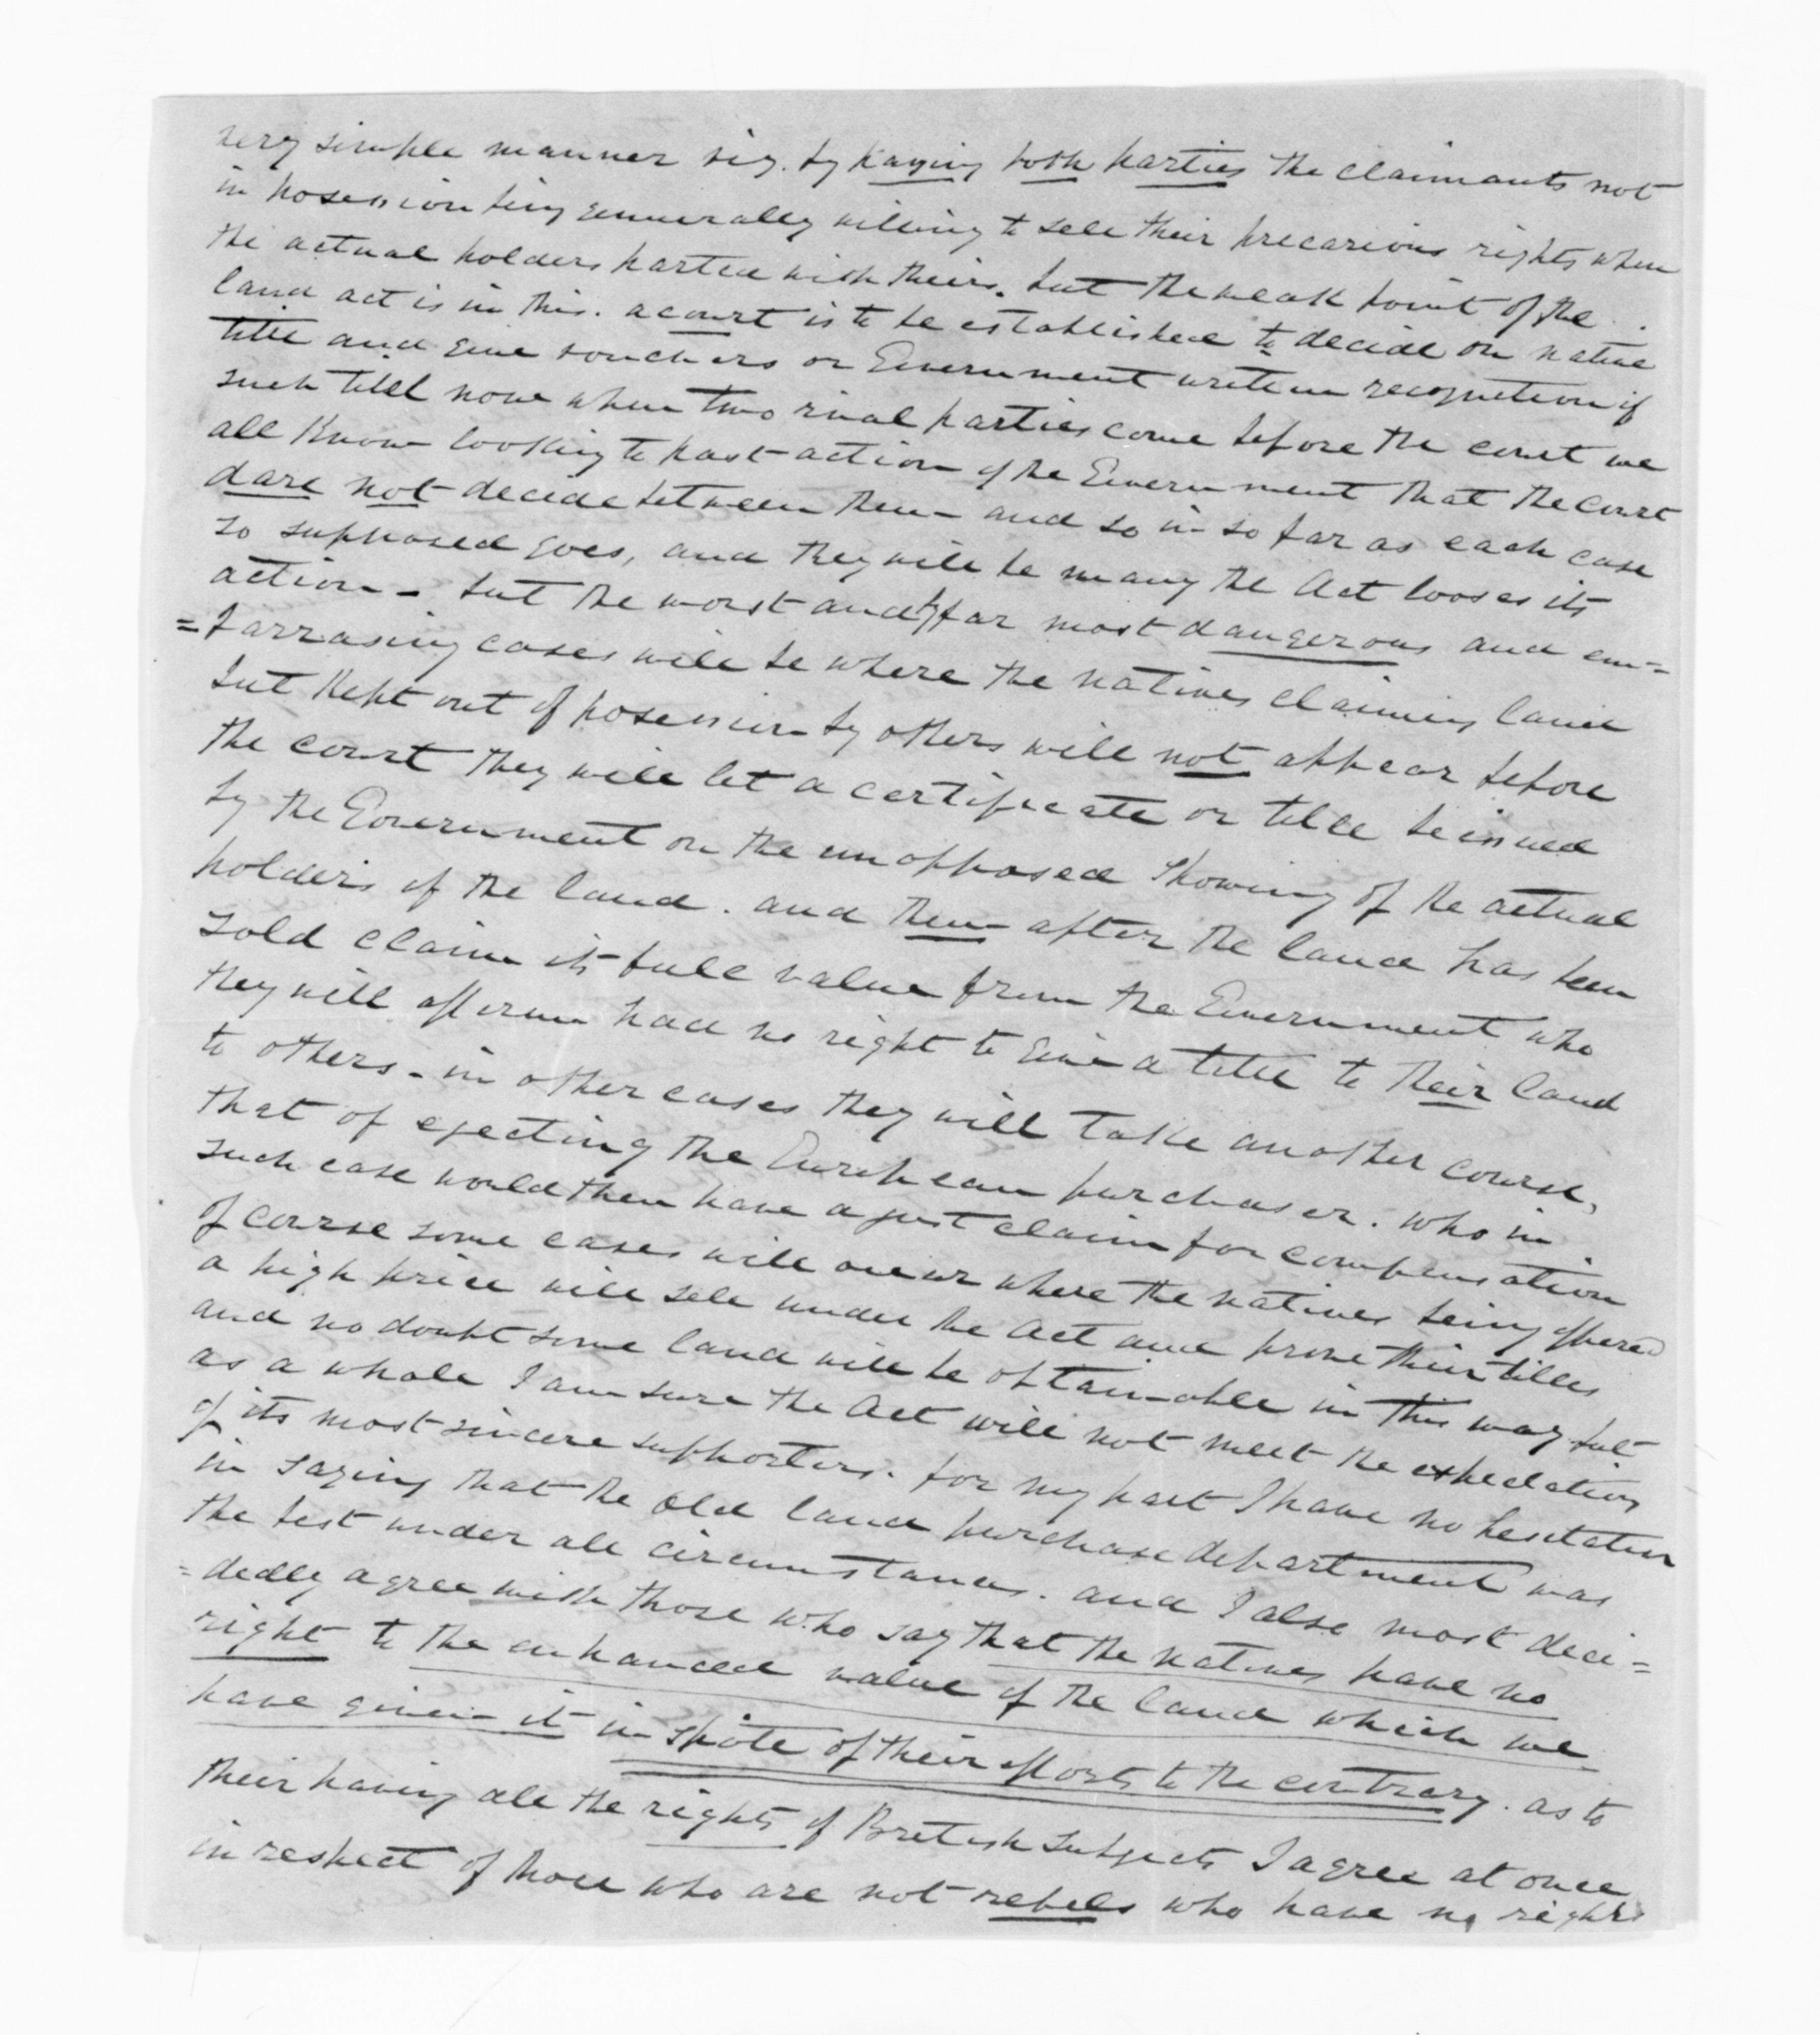 very simple manner viz. by paying both parties the claimants not
in posession being generally willing to sell their precarious rights when
the actual holders parted with theirs. but the weak point of the
land act is in this. a court is to be established to decide on native
title and give vouchers or Government writen recognetion of
such titel now when two rival parties come before the court we
all know looking to past action of the Government that the court
dare not decide between them and so in so far as each case
so supposed goes, and they will be many the Act looses its
action - but the worst and by far most dangerous and em=
=barrasing cases will be where the natives claiming land
but kept out of posession by others will not appear before
the court they will let a certificate or titel be issued
by the Government on the unopposed showing of the actual
holders of the land. and then after the land has been
sold claim its full value from the Government who
they will affirm had no right to give a title to their land
to others - in other cases they will take another course,
that of ejecting the European purchaser. who in
such case would then have a just claim for compensation
of course some cases will occur where the natives being offered
a high price will sell under the Act and prove their titles
and no doubt some land will be obtainable in this way but
as a whole I am sure the Act will not meet the expectations
of its most sincere supporters. for my part I have no hesitation
in saying that the old land purchase department was
the best under all circumstances. and I also most deci=
=dedly agree with those who say that the natives have no
right to the enhanced value of the land which we
have given it in spite of their efforts to the contrary. as to
their having all the rights of British subjects I agree at once
in respect of those who are not rebels who have no rights